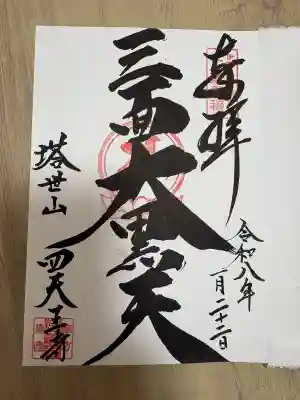 奉拝
令和八年
一月二十二日
三面大黒天
塔世山
四天王寺